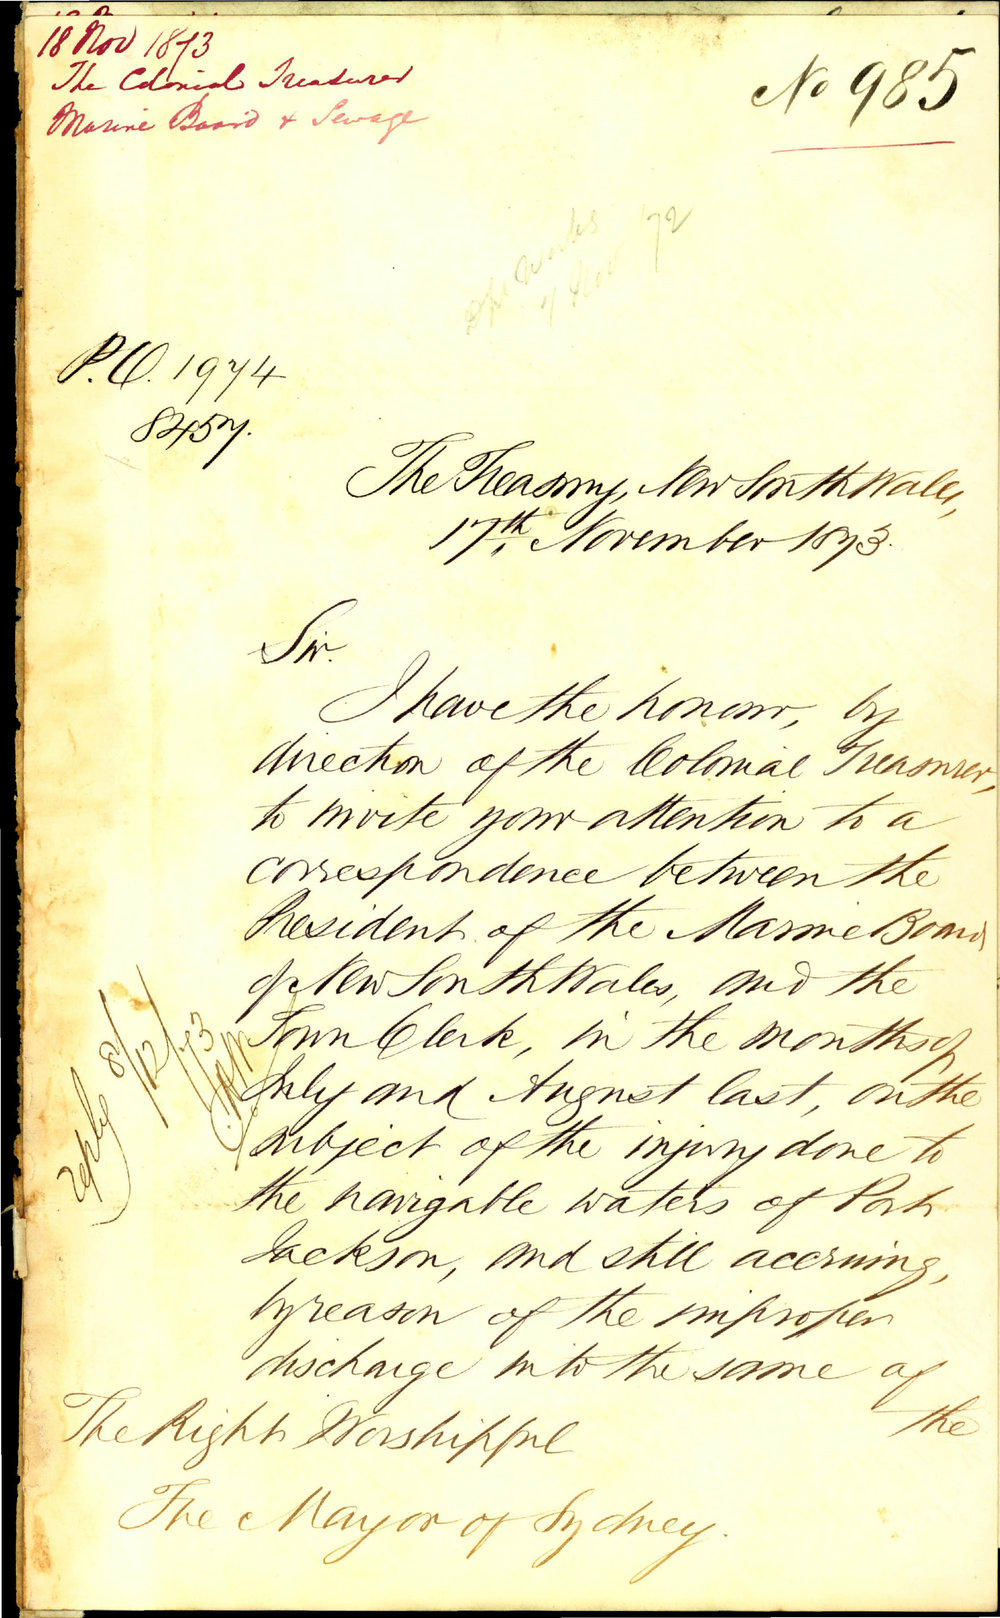 18 Nov 1873
The Colonial Treasurer
Marine Board & Sewage
No 985
7 Nov 72
P.O. 1974
8457.
The Treasury, New South Wales,
17th November 1873.
Sir.
I have the honour, by
direction of the Colonial Treasurer,
to invite your attention to a
correspondence between the
President of the Marine Board
of New South Wales, and the
Town Clerk, in the months of
July and August last, on the
subject of the injury done to
the navigable waters of Port
Jackson, and still accruing,
by reason of the improper
discharge into the same of
the
reply 8/12/73
The Right Worshipful
The Mayor of Sydney.